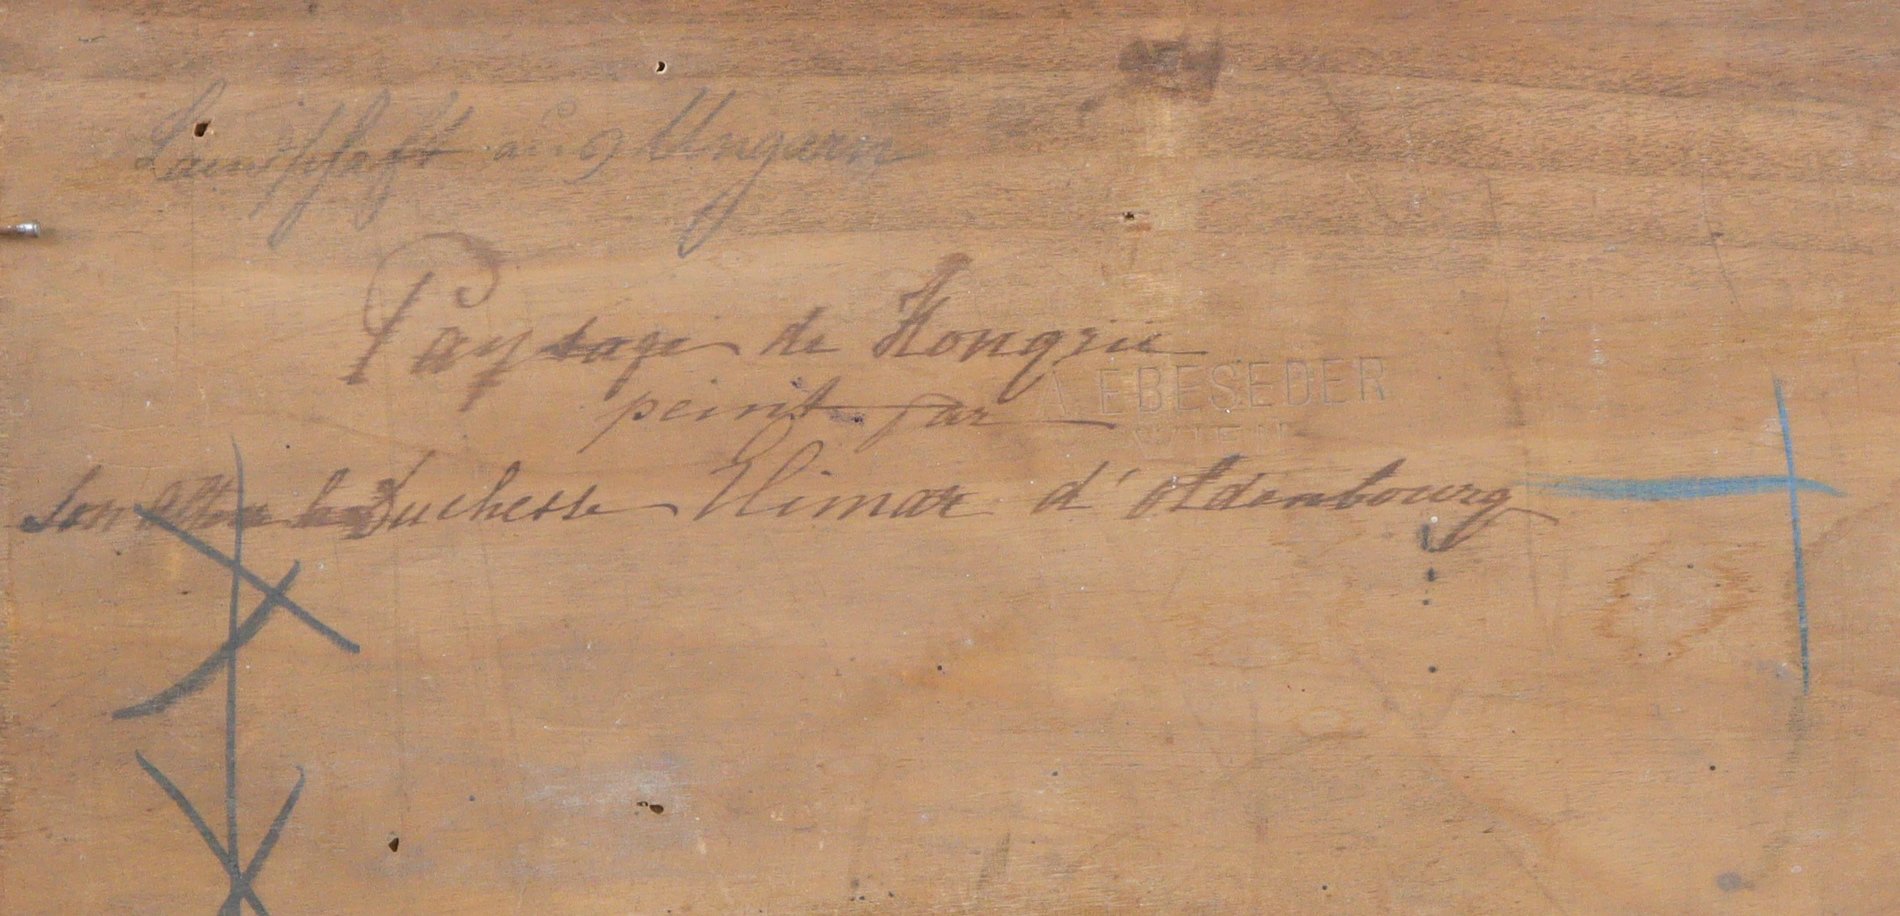 Landschaft aus Ungarn
Paysage de Hongrie
peint par
A. EBESEDER
WIEN
Son Altesse la Duchesse Elimar d'Oldenbourg